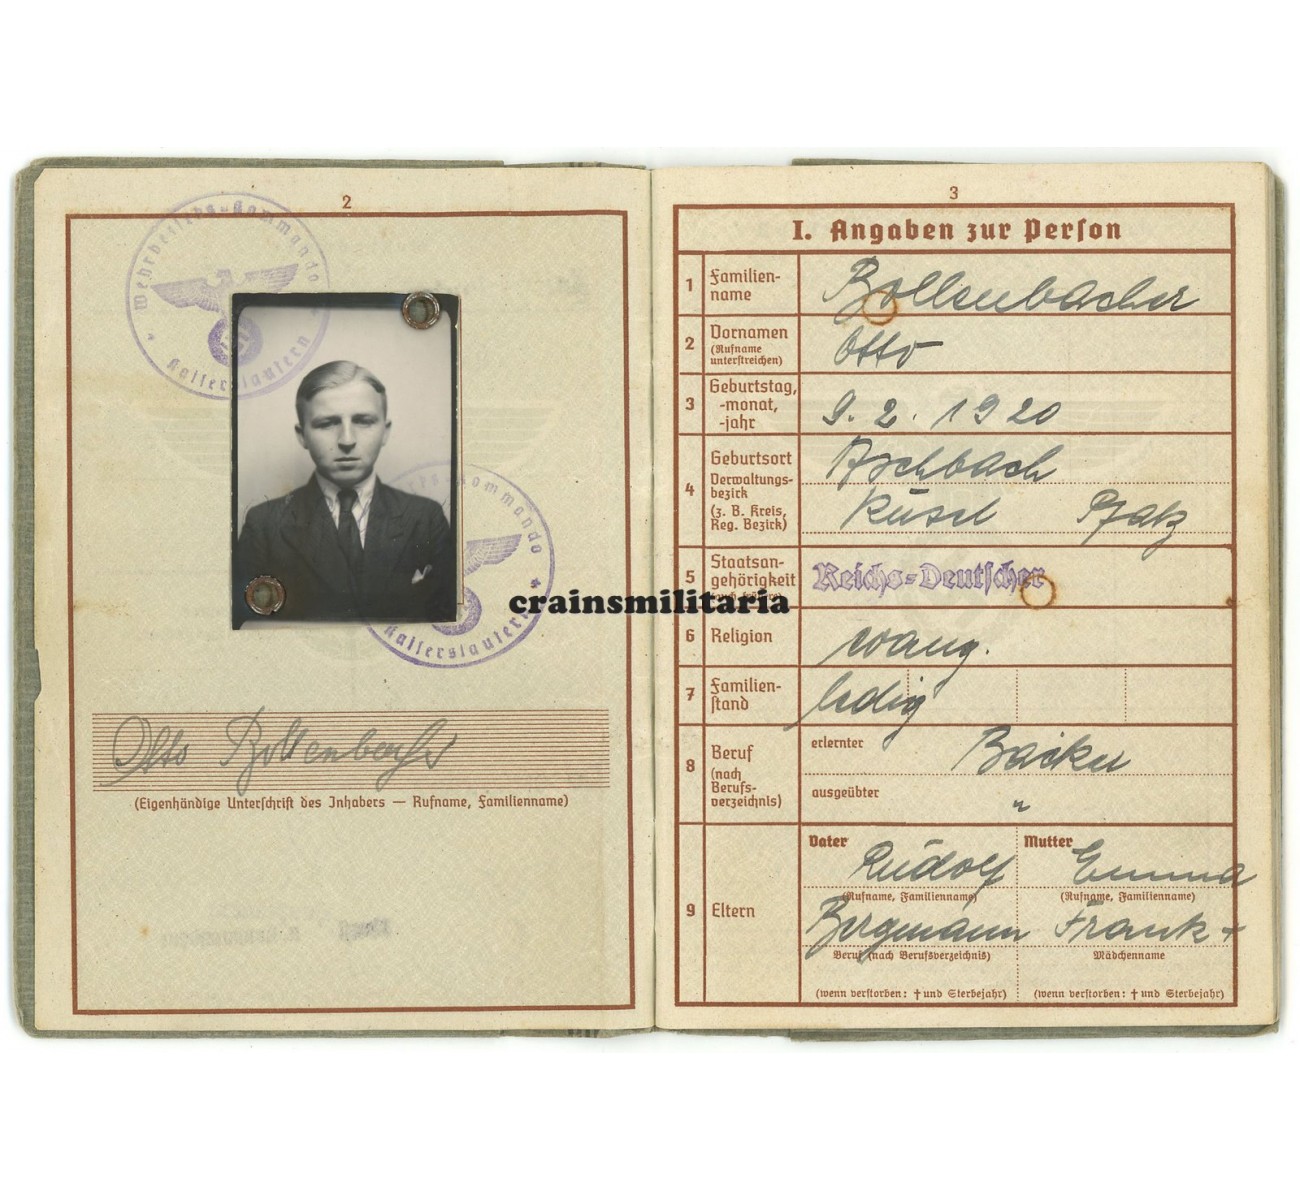 2
Wehrbezirks-Kommando
Kaiserslautern
Kommando
Kaiserslautern
crainsmilitaria
Otto Bollenbacher
(Eigenhändige Unterschrift des Inhabers — Rufname, Familienname)
3
I. Angaben zur Person
1 Familien-
name
Bollenbacher
2 Vornamen
(Rufname
unterstreichen)
Otto
3 Geburtstag,
-monat,
-jahr
9. 2. 1920
4 Geburtsort
Verwaltungs-
bezirk
(z. B. Kreis,
Reg. Bezirk)
Aschbach
Kusel Pfalz
5 Staatsan-
gehörigkeit
Reichs-Deutscher
6 Religion
evang.
7 Familien-
stand
ledig
8 Beruf
(nach
Berufs-
verzeichnis)
erlernter Bäcker
ausgeübter "
9 Eltern
Vater Rudolf
(Rufname, Familienname)
Bergmann
Beruf (nach Berufsverzeichnis)
(wenn verstorben: † und Sterbejahr)
Mutter Emma
(Rufname, Familienname)
Frank +
Mädchenname
(wenn verstorben: † und Sterbejahr)